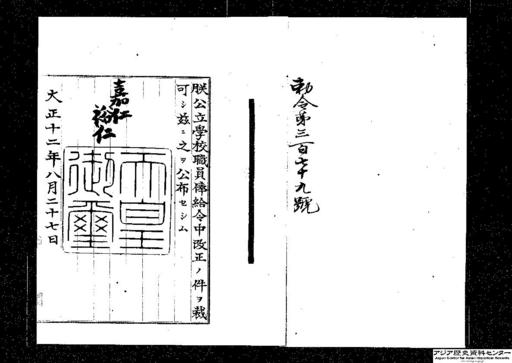 勅令第三百七十九號
朕公立學校職員俸給令中改正ノ件ヲ裁
可シ茲ニ之ヲ公布セシム
嘉仁
裕仁
天皇
御璽
大正十二年八月二十七日
アジア歴史資料センター
Japan Center for Asian Historical Records